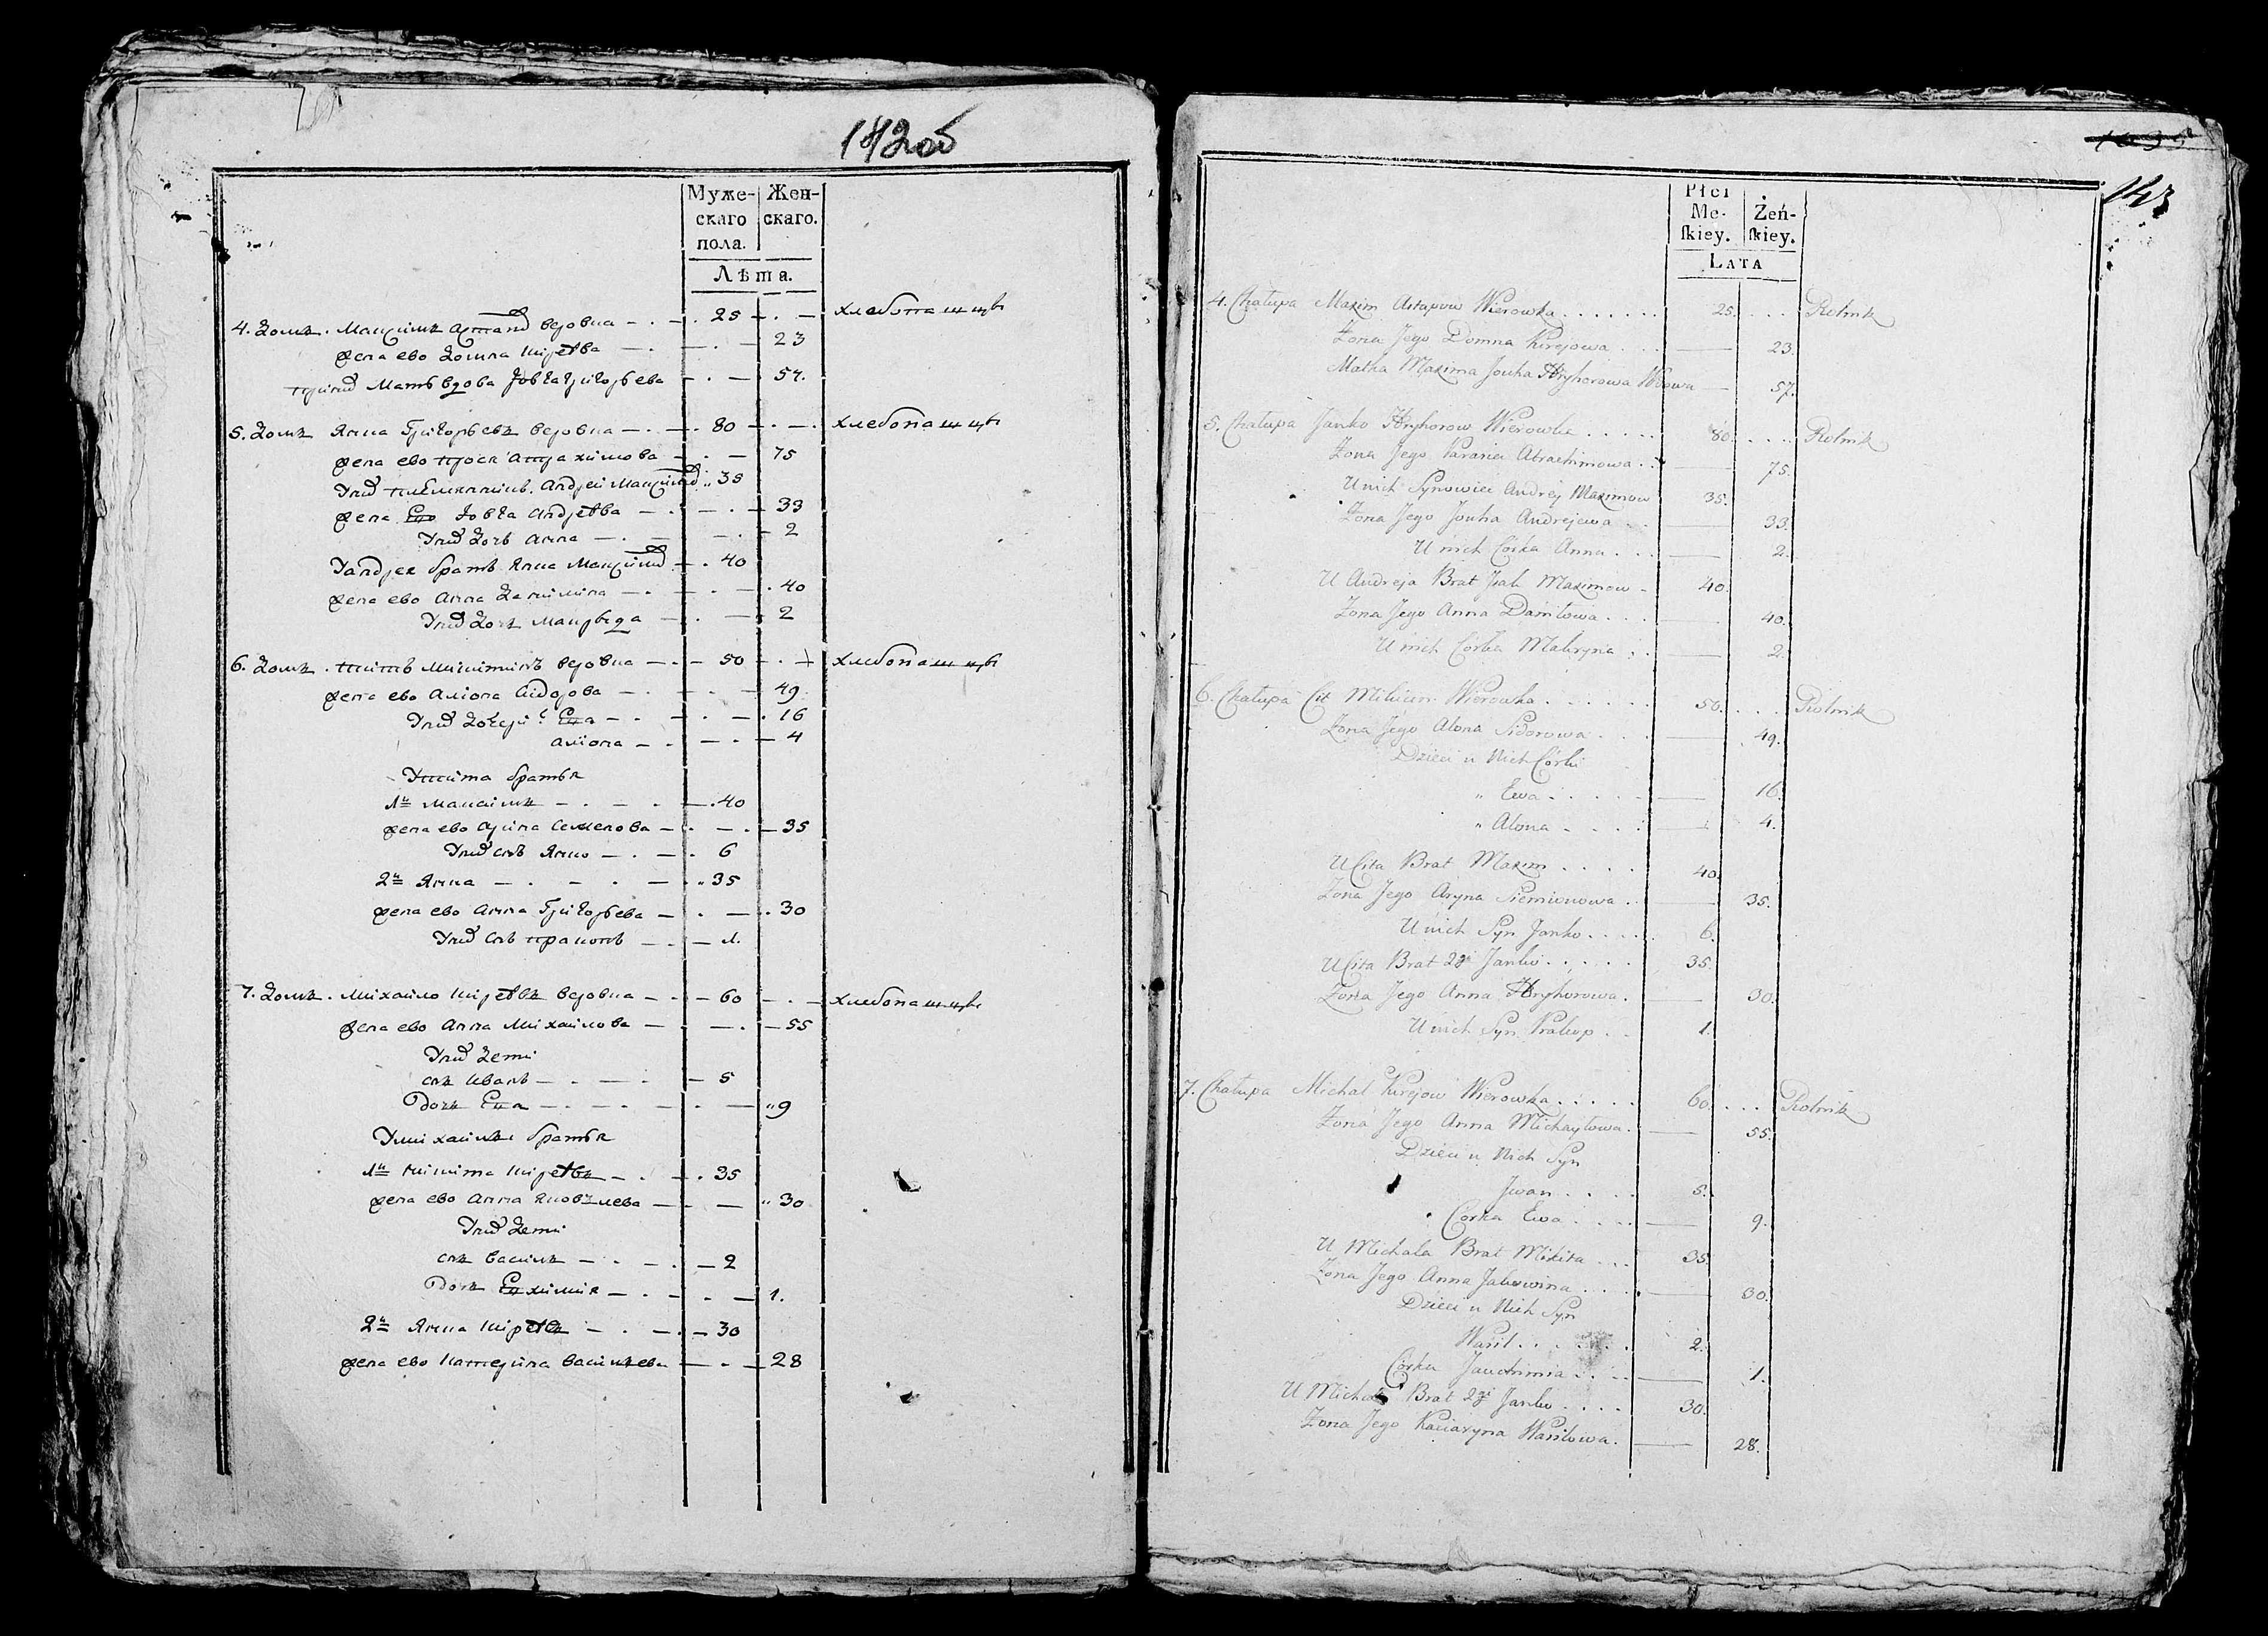 142об
Муже-
скаго
пола.
Жен-
скаго.
Лѣта.
4. Домъ. Максимъ Астапов Веровка 25 хлебопашцы
жена ево Домна Кирѣева 23
при них Мать вдова Ювга Григорьева 57.
5. Домъ Янка Григорьевъ Веровка 80 хлебопашцы
жена ево Праск Апрахимова 75
У них племянникъ Андрей Максимов 35
жена Ево Ювга Андрѣева 33
У них дочь Анна 2
У андрея братъ Янка Максимов 40
жена ево Анна Данилина 40
У них дочъ Макрыда 2
6. Домъ. Титъ Микитинъ Веровка 50 хлебопашцы
жена ево Алиона Сидорова 49
У них дочери: Ева 16
Алиона 4
У тита братья
1й Максимъ 40
жена ево Арина Семенова 35
У них снъ Янко 6
2й Янка 35
жена ево Анна Григорьева 30
У них снъ Пракопъ 1.
7. Домъ. Михайло Кирѣевъ Веровка 60 хлебопашцы
жена ево Анна Михайлова 55
У них дети
снъ Иванъ 5
Дочь Ева 9
У михаилы братья
1й Микита Кирѣевъ 35
жена ево Анна Яковлева 30
У них дети
снъ Василь 2
Дочъ Евхимия 1.
2й Янка Кирѣевъ 30
жена ево Катерина Васильева 28
143
Płci
Mę-
ſkiey.
Żeń-
ſkiey.
LATA
4. Chałupa Maxim Astapow Wierowka 25. Rolnik
Żona Jego Domna Kirejowa 23.
Matka Maxima Jouha Hryhorowa Wdowa 57.
5. Chałupa Janko Hryhorow Wierowka 80. Rolnik
Żona Jego Parasia Abrachimowa 75.
U nich Synowiec Andrey Maximow 35.
Żona Jego Jouha Andrejewa 33.
U nich Córka Anna 2.
U Andreja Brat Jsak Maximow 40.
Żona Jego Anna Daniłowa 40.
U nich Córka Makryna 2.
6. Chałupa Cit Mikicin Wierowka 50. Rolnik
Żona Jego Alona Sidorowa 49.
Dzieci u Nich Córki
" Ewa 16.
" Alona 4.
U Cita Brat Maxim 40.
Żona Jego Aryna Siemionowa 35.
U nich Syn Janko 6.
U Cita Brat 2gi Janko 35.
Żona Jego Anna Hryhorowa 30.
U nich Syn Prakop 1.
7. Chałupa Michał Kirejow Wierowka 60. Rolnik
Żona Jego Anna Michayłowa 55.
Dzieci u Nich Syn
Jwan 5.
Córka Ewa 9.
U Michała Brat Mikita 35.
Żona Jego Anna Jakowina 30.
Dzieci u Nich Syn
Wasil 2.
Córka Jauchimia 1.
U Michała Brat 2gi Janko 30.
Żona Jego Kaciaryna Wasilowa 28.